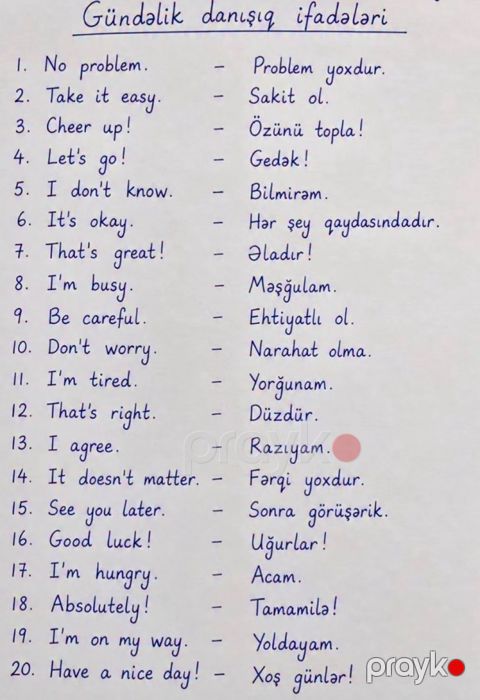 Gündəlik danışıq ifadələri
1. No problem. – Problem yoxdur.
2. Take it easy. – Sakit ol.
3. Cheer up! – Özünü topla!
4. Let's go! – Gedək!
5. I don't know. – Bilmirəm.
6. It's okay. – Hər şey qaydasındadır.
7. That's great! – Əladır!
8. I'm busy. – Məşğulam.
9. Be careful. – Ehtiyatlı ol.
10. Don't worry. – Narahat olma.
11. I'm tired. – Yorğunam.
12. That's right. – Düzdür.
13. I agree. – Razıyam.
prayk
14. It doesn't matter. – Fərqi yoxdur.
15. See you later. – Sonra görüşərik.
16. Good luck! – Uğurlar!
17. I'm hungry. – Acam.
18. Absolutely! – Tamamilə!
19. I'm on my way. – Yoldayam.
20. Have a nice day! – Xoş günlər!
prayk